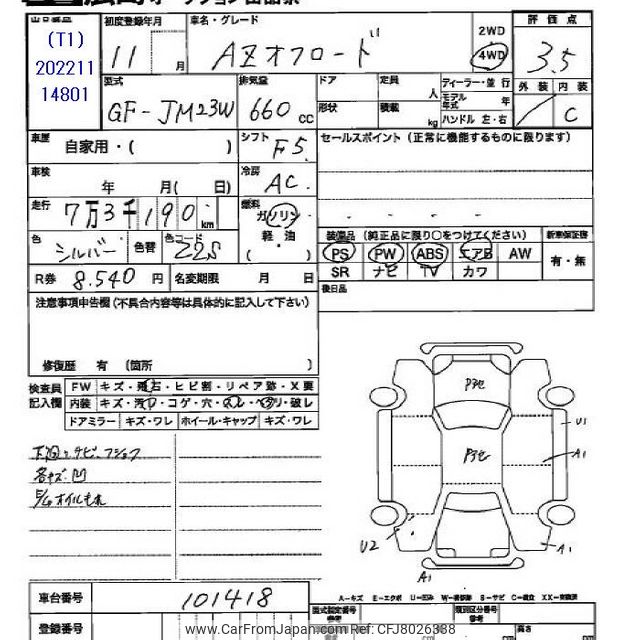 出品番号 初度登録年月 車名・グレード 評価点
(T1)
202211
14801
11 月 AZオフロード 2WD 4WD 3.5
型式 排気量 ドア 定員 人 ディーラー・並行 外装 内装
GF-JM23W 660 CC 形状 積載 kg モデル年式 年 C
ハンドル 左・右
車歴 自家用・( ) シフト F5 セールスポイント(正常に機能するものに限ります)
車検 年 月( 日) 冷房 AC
走行 7万3千190 km 燃料 ガソリン 軽・油
色 シルバー 色替 色コード 22S
装備品(純正品に限り○をつけてください) 新車保証書
PS PW ABS エアB AW 有・無
SR ナビ TV カワ
R券 8.540 円 名変期限 月 日 後日品
注意事項申告欄(不具合内容等は具体的に記入して下さい)
修復歴 有 (箇所 )
検査員記入欄 FW キズ・飛石・ヒビ割・リペア跡・X要
内装 キズ・汚レ・コゲ・穴・スレ・ヘタリ・破レ
ドアミラー キズ・ワレ ホイール・キャップ キズ・ワレ
下廻りサビ、フショク
各キズ凹
E/Gオイルもれ
Pアセ
Pアセ
U1
A1
U2
A1
A1
A-キズ E-エクボ U-凹み
車台番号 101418
型式指定番号 類別区分番号
登録番号 長さ
www.CarFromJapan.com Ref: CFJ8026338